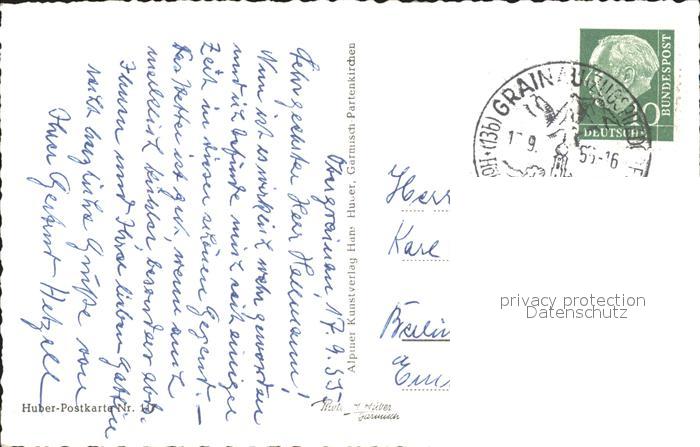 Obergrainau, 17.9.55
Sehr geehrter Herr Hellmann!
Nun ist es wirklich wahr geworden
und ich befinde mich seit einiger
Zeit in dieser schönen Gegend. –
Das Wetter ist gut, wenn auch
merklich kühler, besonders abds.
Ihnen und Ihrer lieben Gattin
recht herzliche Grüße von
Ihrer Gertrud
Alpiner Kunstverlag Hans Huber, Garmisch-Partenkirchen
Huber-Postkarte Nr.
Photo Huber
Garmisch
GRAINAU
17.9.55-16
DEUTSCHE
BUNDESPOST
Herr
Karl
Berlin
privacy protection
Datenschutz